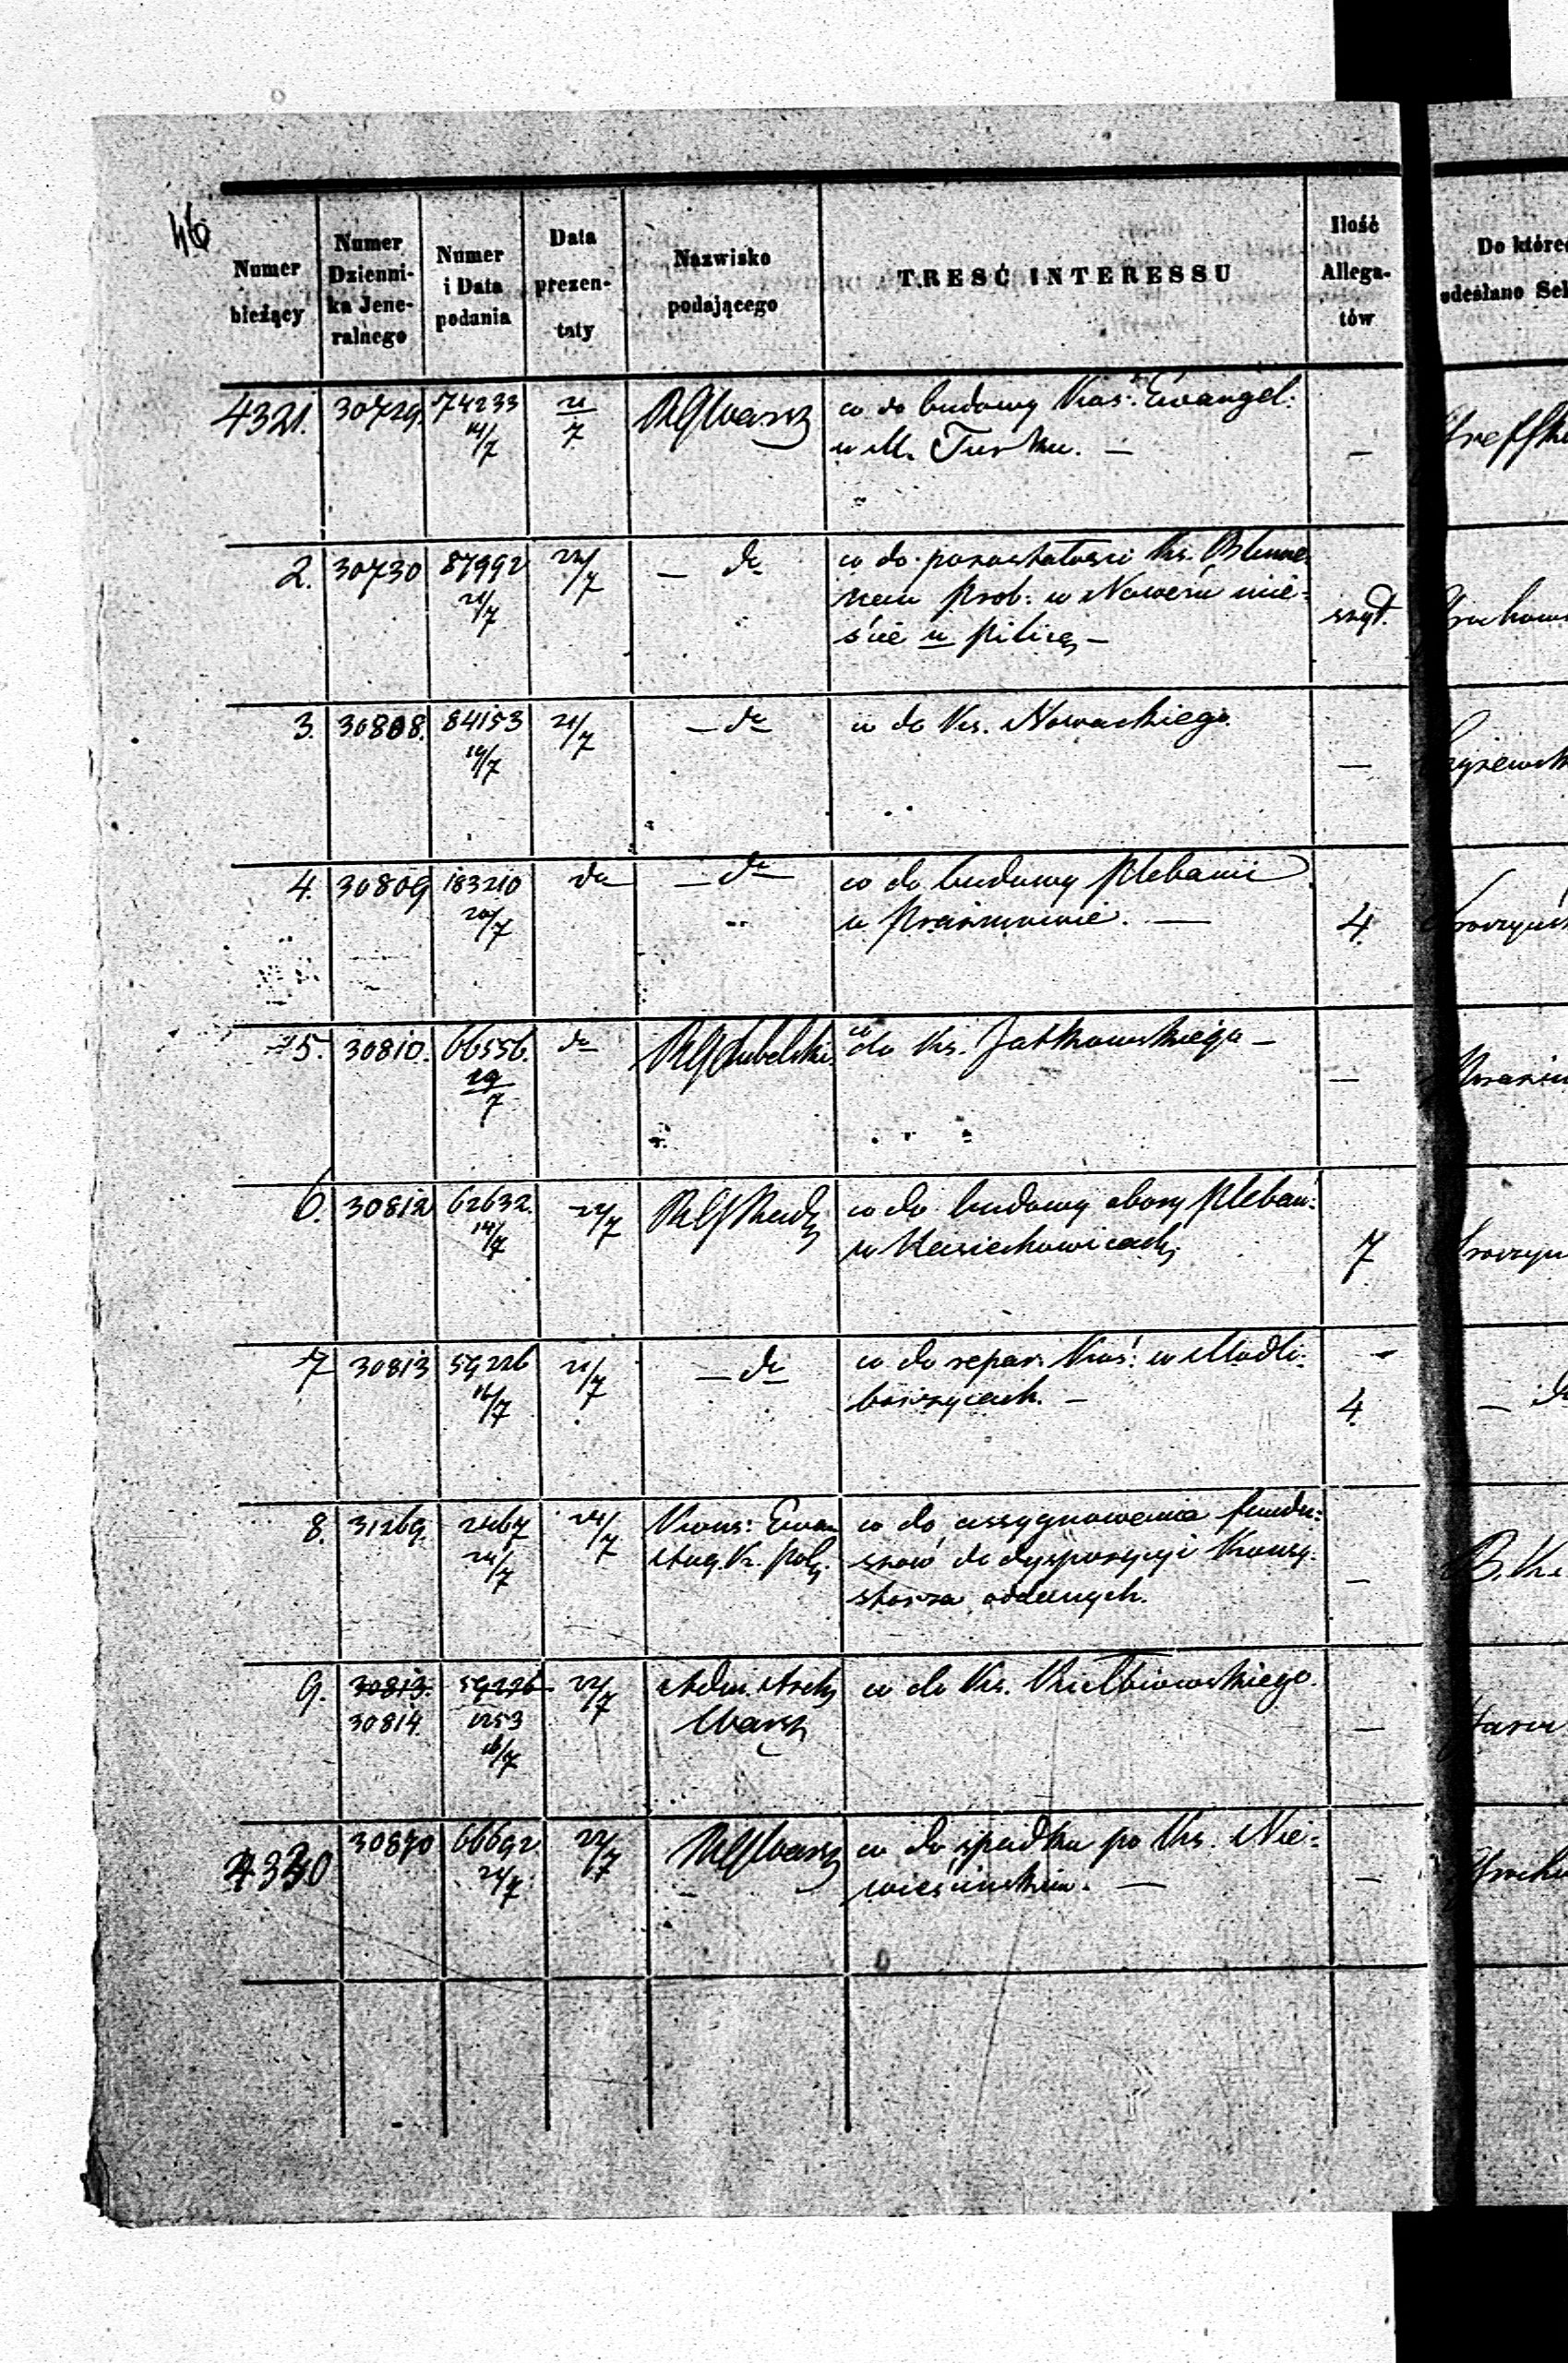 46
Numer bieżący | Numer Dzienni- ka Jene- ralnego | Numer i Data podania | Data prezen- taty | Nazwisko podającego | TREŚĆ INTERESSU | Ilość Allega- tów | Do które odesłano Sek
4321. | 30729. | 74233 14/7 | 21/7 | RGWarsz | co do budowy Koś: Ewangel:
w M. Turku. — | —
2. | 30730 | 87992 21/7 | 22/7 | — do | co do pozostałości Ks.
Prob: w Nowem mie-
ście n Pilicą — | szyt.
3. | 30808. | 84153 19/7 | 21/7 | — do | co do Ks. Nowackiego. | —
4. | 30809 | 183210 20/7 | do | — do | co do budowy Plebanii
w Prażmowie. — | 4.
5. | 30810. | 66556. 19/7 | do | RGLubelski | co do Ks. Jatkowskiego — | —
6. | 30812 | 62632. 14/7 | 22/7 | RGRad | co do budowy obory pleban:
w | 7
7 | 30813 | 59226 16/7 | 21/7 | — do | co do repar: Koś: w Modli-
borzycach. — | 4. | — do
8. | 31269. | 2467 21/7 | 24/7 | Kons: Ewan
Aug. K. Pol. | co do assygnowania fundu-
szów do dyspozycyi Konsy-
storza oddanych. | —
9. | 30813. 30814. | 59226 1253 16/7 | 22/7 | Adm. Arch
Warsz | co do Ks. Kiełbiowskiego. | —
4330 | 30870 | 66692 21/7 | 22/7 | RGWarsz | co do spadku po Ks. Nie-
wieścińskim. — | —